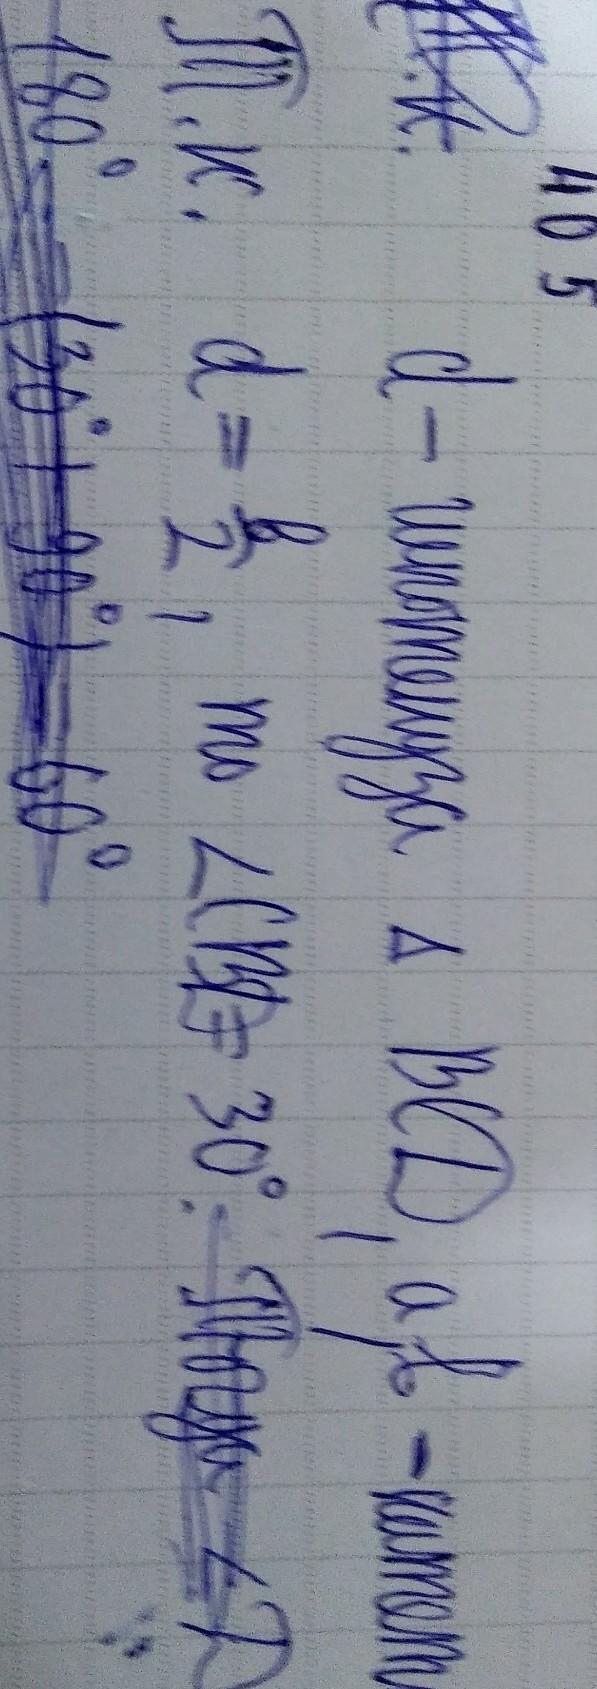 405
Т.к. d - гипотенуза △ BCD, а b - катет
Т.к. d = b/2, то ∠CBD = 30°. Тогда ∠D
180° - (30° + 90°) = 60°